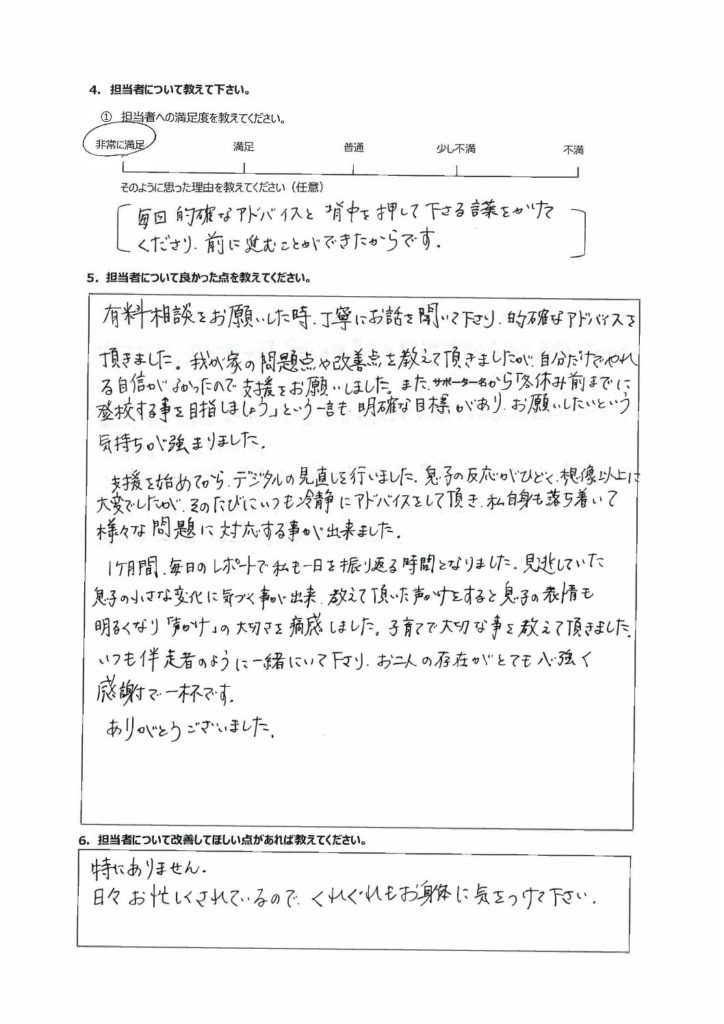 4．担当者について教えて下さい。
① 担当者への満足度を教えてください。
非常に満足 満足 普通 少し不満 不満
そのように思った理由を教えてください（任意）
毎回 的確なアドバイスと 背中を押して下さる言葉をかけて
くださり、前に進むことができたからです。
5．担当者について良かった点を教えてください。
有料相談をお願いした時、丁寧にお話を聞いて下さり、的確なアドバイスを
頂きました。我が家の問題点や改善点を教えて頂きましたが、自分だけでやれ
る自信がなかったので支援をお願いしました。また、サポーター名から「冬休み前までに
登校する事を目指しましょう」という一言も、明確な目標があり、お願いしたいという
気持ちが強まりました。
支援を始めてから、デジタルの見直しを行いました。息子の反応がひどく、想像以上に
大変でしたが、そのたびにいつも冷静にアドバイスをして頂き、私自身も落ち着いて
様々な問題に対応する事が出来ました。
1ヶ月間、毎日のレポートで私も一日を振り返る時間となりました。見逃していた
息子の小さな変化に気づく事が出来、教えて頂いた声かけをすると息子の表情も
明るくなり「声かけ」の大切さを痛感しました。子育てで大切な事を教えて頂きました。
いつも伴走者のように一緒にいて下さり、お二人の存在がとても心強く
感謝で一杯です。
ありがとうございました。
6．担当者について改善してほしい点があれば教えてください。
特にありません。
日々お忙しくされているので、くれぐれもお身体に気をつけて下さい。